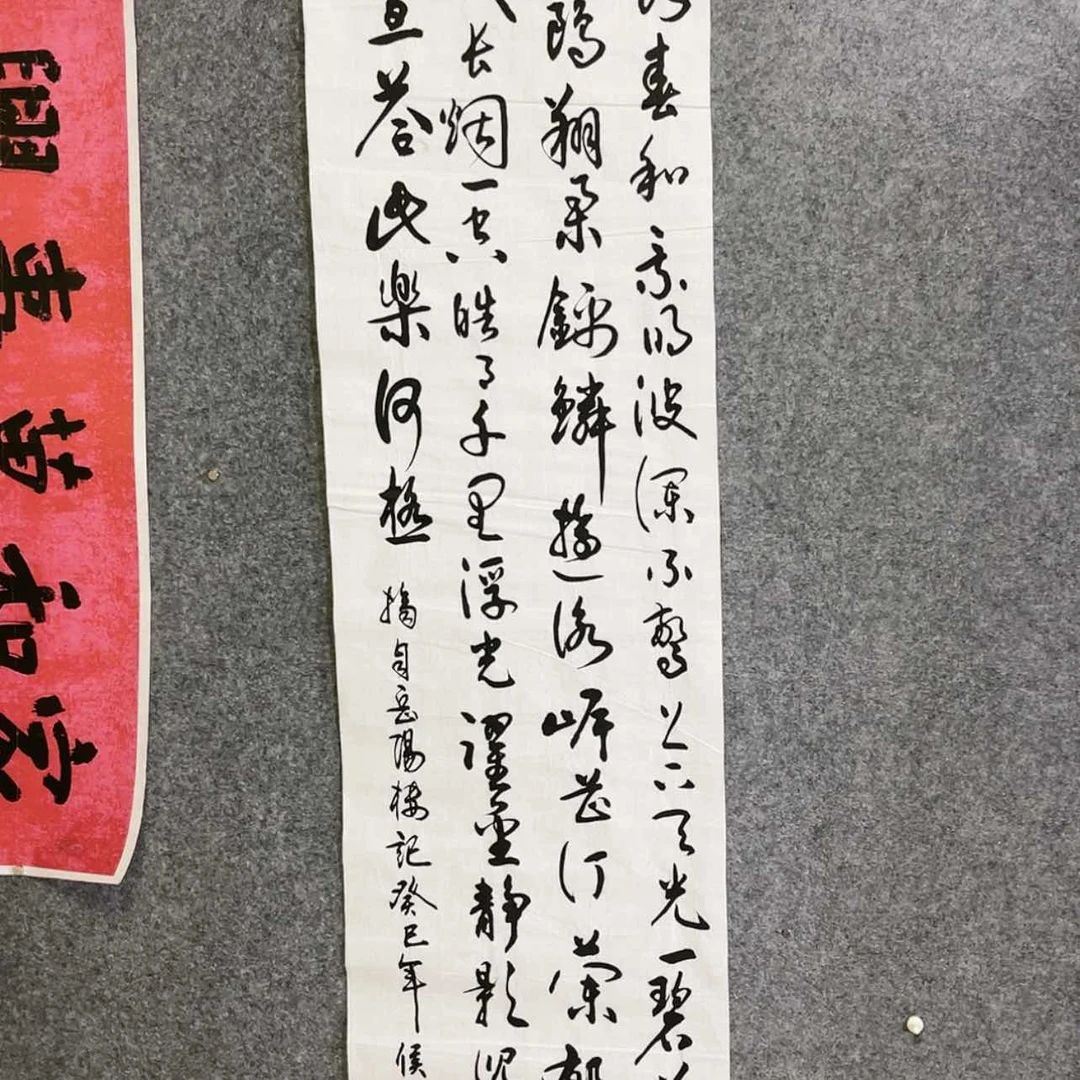 春和景明波瀾不驚上下天光一碧
鷗翔集錦鱗遊泳岸芷汀蘭郁
长烟一空皓月千里浮光躍金静影沉
互荅此樂何極
摘自岳陽樓記癸巳年侯
家和萬事興